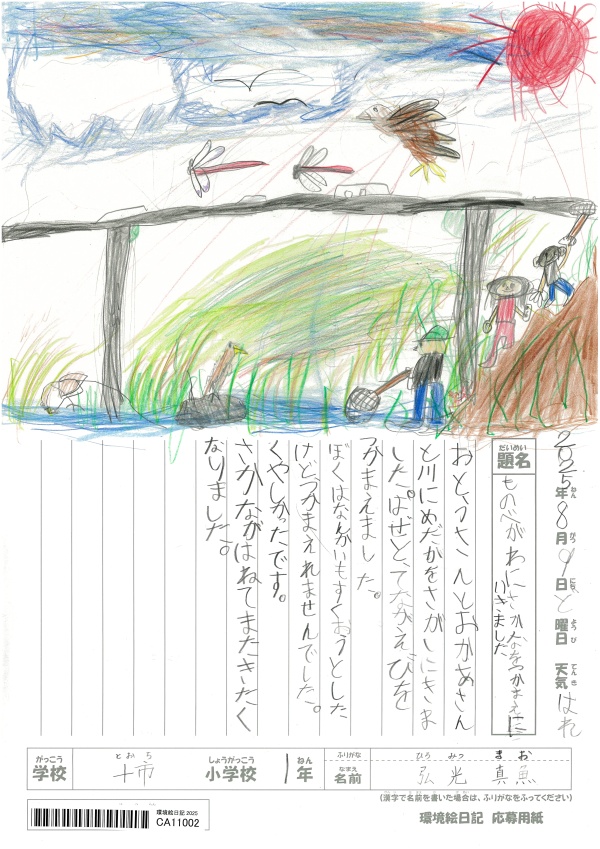 2025年ねん8月がつ9日にちど曜日ようび 天気てんきはれ
だいめい
題名
ものべがわにさかなをつかまえに
いきました
おとうさんとおかあさん
と川にめだかをさがしにきま
した。ぱぜとってながえびを
つかまえました。
ぼくはなんかいもすくおうとした
けどつかまえれませんでした。
くやしかったです。
さかながはねてまたきたく
なりました。
がっこう
学校
とおち
十市
しょうがっこう
小学校
1年ねん
ふりがな
なまえ
名前
ひろ みつ まお
弘光 真魚
(漢字で名前を書いた場合は、ふりがなをふってください)
環境絵日記 2025
CA11002
環境絵日記 応募用紙